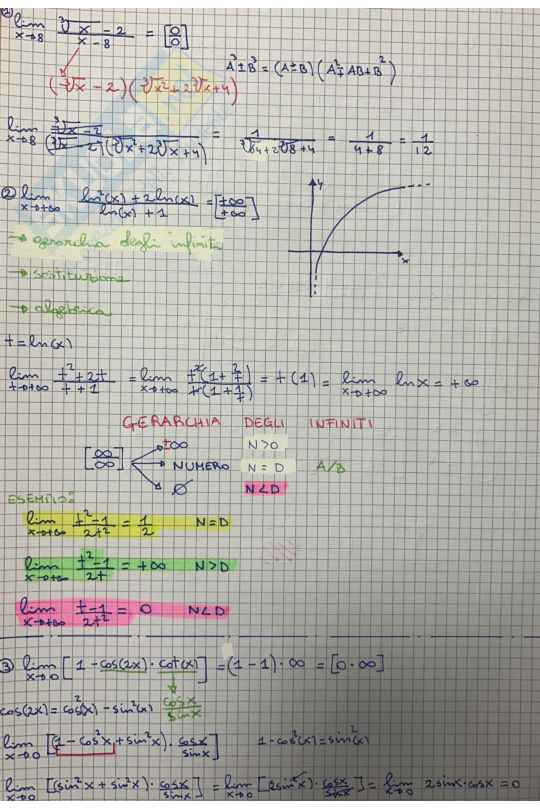 ① lim x→8 (∛x - 2)/(x - 8) = [0/0]
A³ ± B³ = (A ± B)(A² ∓ AB + B²)
(∛x - 2)(∛x² + 2∛x + 4)
lim x→8 (∛x - 2)/((∛x - 2)(∛x² + 2∛x + 4)) = 1/(∛64 + 2∛8 + 4) = 1/(4+8) = 1/12
② lim x→+∞ (ln²(x) + 2ln(x))/(ln(x) + 1) = [+∞/+∞]
y
→ gerarchia degli infiniti
x
→ sostituzione
→ algebrica
t = ln(x)
lim t→+∞ (t² + 2t)/(t + 1) = lim x→+∞ t²(1 + 2/t)/t(1 + 1/t) = t(1) = lim x→+∞ ln x = +∞
GERARCHIA DEGLI INFINITI
±∞ N>O
[∞/∞] NUMERO N = D A/B
∅ N<D
ESEMPIO:
lim x→+∞ (t² - 1)/2t² = 1/2 N=D
lim x→+∞ (t² - 1)/2t = +∞ N>D
lim x→+∞ (t - 1)/2t² = 0 N<D
③ lim x→0 [1 - cos(2x) · cot(x)] = (1 - 1) · ∞ = [0 · ∞]
cos(2x) = cos²(x) - sin²(x) cosx/sinx
lim x→0 [(1 - cos²x + sin²x) · cosx/sinx] 1 - cos²(x) = sin²(x)
lim x→0 [(sin²x + sin²x) · cosx/sinx] = lim x→0 [2sin²x · cosx/sinx] = lim x→0 2sinx · cosx = 0